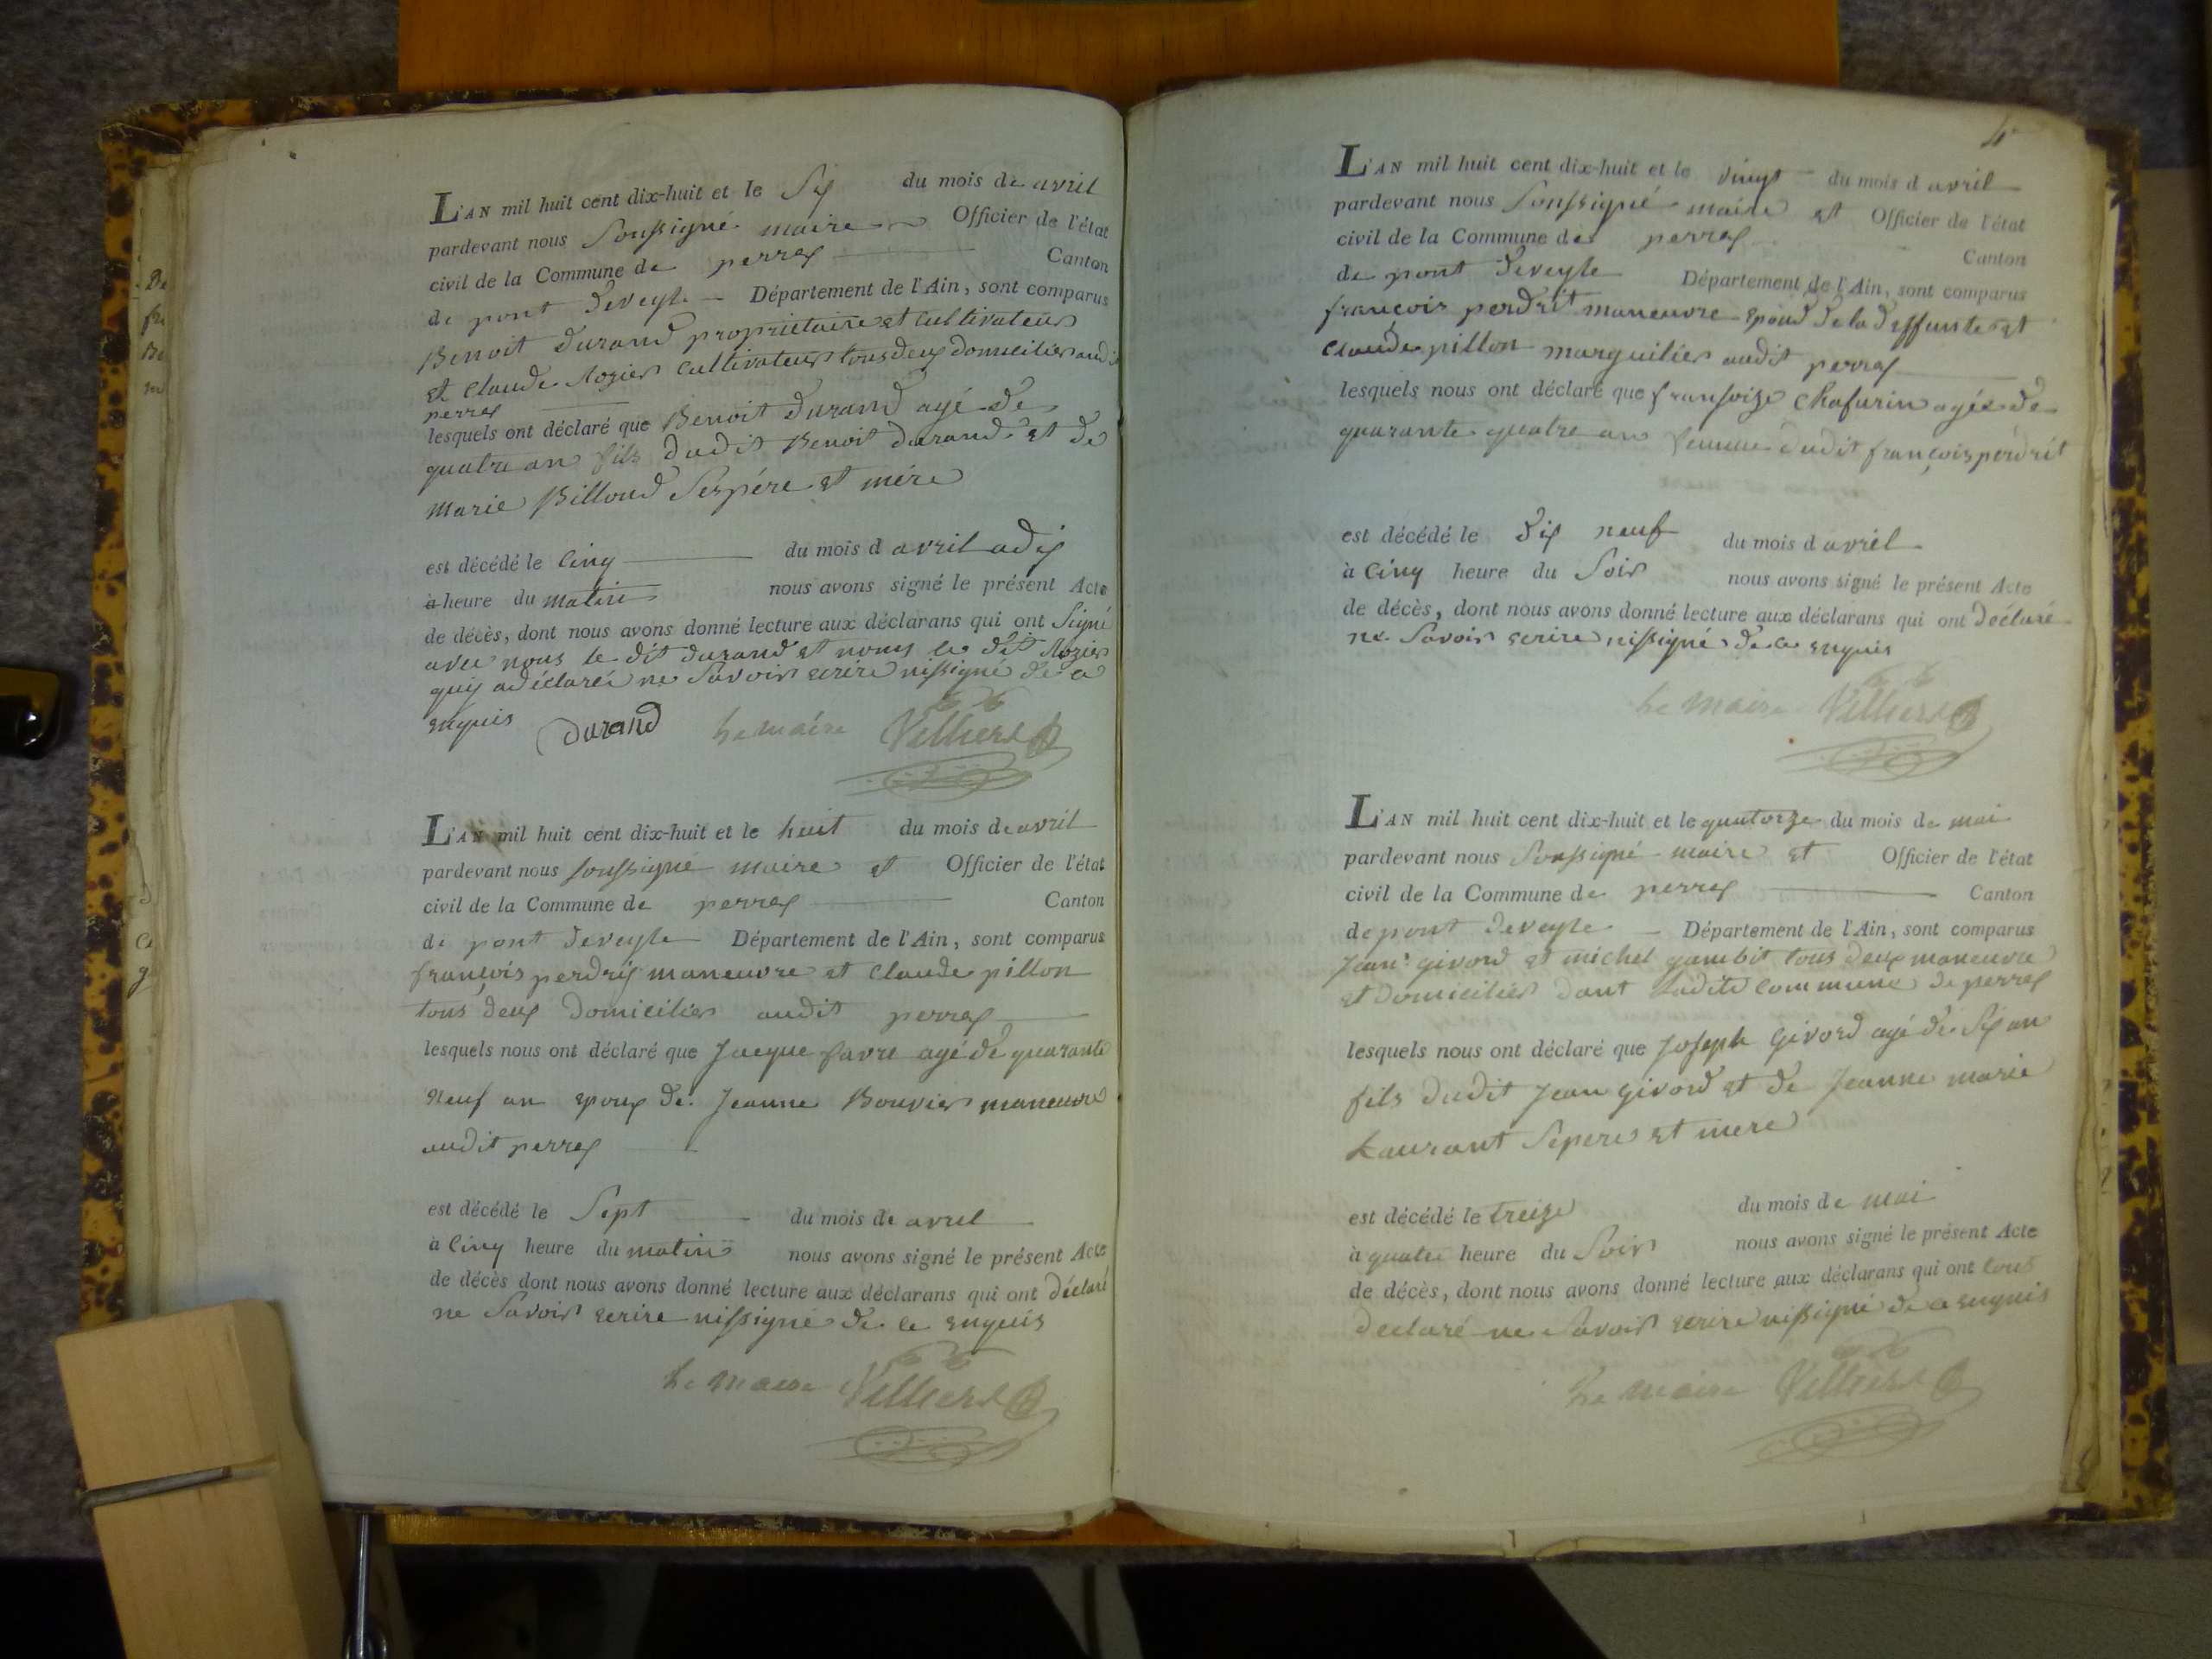 L'AN mil huit cent dix-huit et le Six du mois de avril
pardevant nous Soussigné maire Officier de l'état
civil de la Commune de perrex Canton
de pont deveyle Département de l'Ain, sont comparus
Benoit durand proprietaire et cultivateur
et claude Rozier cultivateur tous deux domicilier audit
perrex
lesquels ont déclaré que Benoit durand agé de
quatre an fils dudit Benoit durand et de
marie Billoud Ses pére et mére
est décédé le Cinq du mois d avril a dix
à heure du matin nous avons signé le présent Acte
de décès, dont nous avons donné lecture aux déclarans qui ont Signé
avec nous le dit durand et nons le dit Rozier
quij a déclaréé ne Savoir ecrire nissigné de ce
enquis Durand Le maire Velliers
L'AN mil huit cent dix-huit et le huit du mois de avril
pardevant nous soussigné maire et Officier de l'état
civil de la Commune de perrex Canton
de pont deveyle Département de l'Ain, sont comparus
françois perdrix maneuvre et claude pillon
tous deux domicilier audit perrex
lesquels nous ont déclaré que Jacque favre agé de quarante
neuf an epoux de Jeanne Bouvier maneuvre
audit perrex
est décédé le Sept du mois de avril
à Cinq heure du matin nous avons signé le présent Acte
de décès dont nous avons donné lecture aux déclarans qui ont déclaré
ne Savoir ecrire nissigné de ce enquis
Le maire Velliers
4
L'AN mil huit cent dix-huit et le vingt du mois d avril
pardevant nous Soussigné maire et Officier de l'état
civil de la Commune de perrex
Canton
de pont deveyle Département de l'Ain, sont comparus
françois perdrit maneuvre epoud de la deffunte et
claude pillon marguilier audit perrex
lesquels nous ont déclaré que fransoize Chafurin agée de
quarante quatre an femme dudit françois perdrit
est décédé le dix neuf du mois d avril
à Cinq heure du Soir nous avons signé le présent Acte
de décès, dont nous avons donné lecture aux déclarans qui ont déclaré
ne Savoir ecrire nissigné de ce enquis
Le maire Velliers
L'AN mil huit cent dix-huit et le quatorze du mois de mai
pardevant nous Soussigné maire et Officier de l'état
civil de la Commune de perrex Canton
de pont deveyle Département de l'Ain, sont comparus
Jean givord et michel gambit tous deux maneuvre
et domicilier dant ladite commune de perrex
lesquels nous ont déclaré que Joseph Givord agé de Six an
fils dudit Jean givord et de Jeanne marie
Laurant Se pere et mere
est décédé le treize du mois de mai
à quatre heure du Soir nous avons signé le présent Acte
de décès, dont nous avons donné lecture aux déclarans qui ont tous
declaré ne Savoir ecrire nissigné de ce enquis
Le maire Velliers